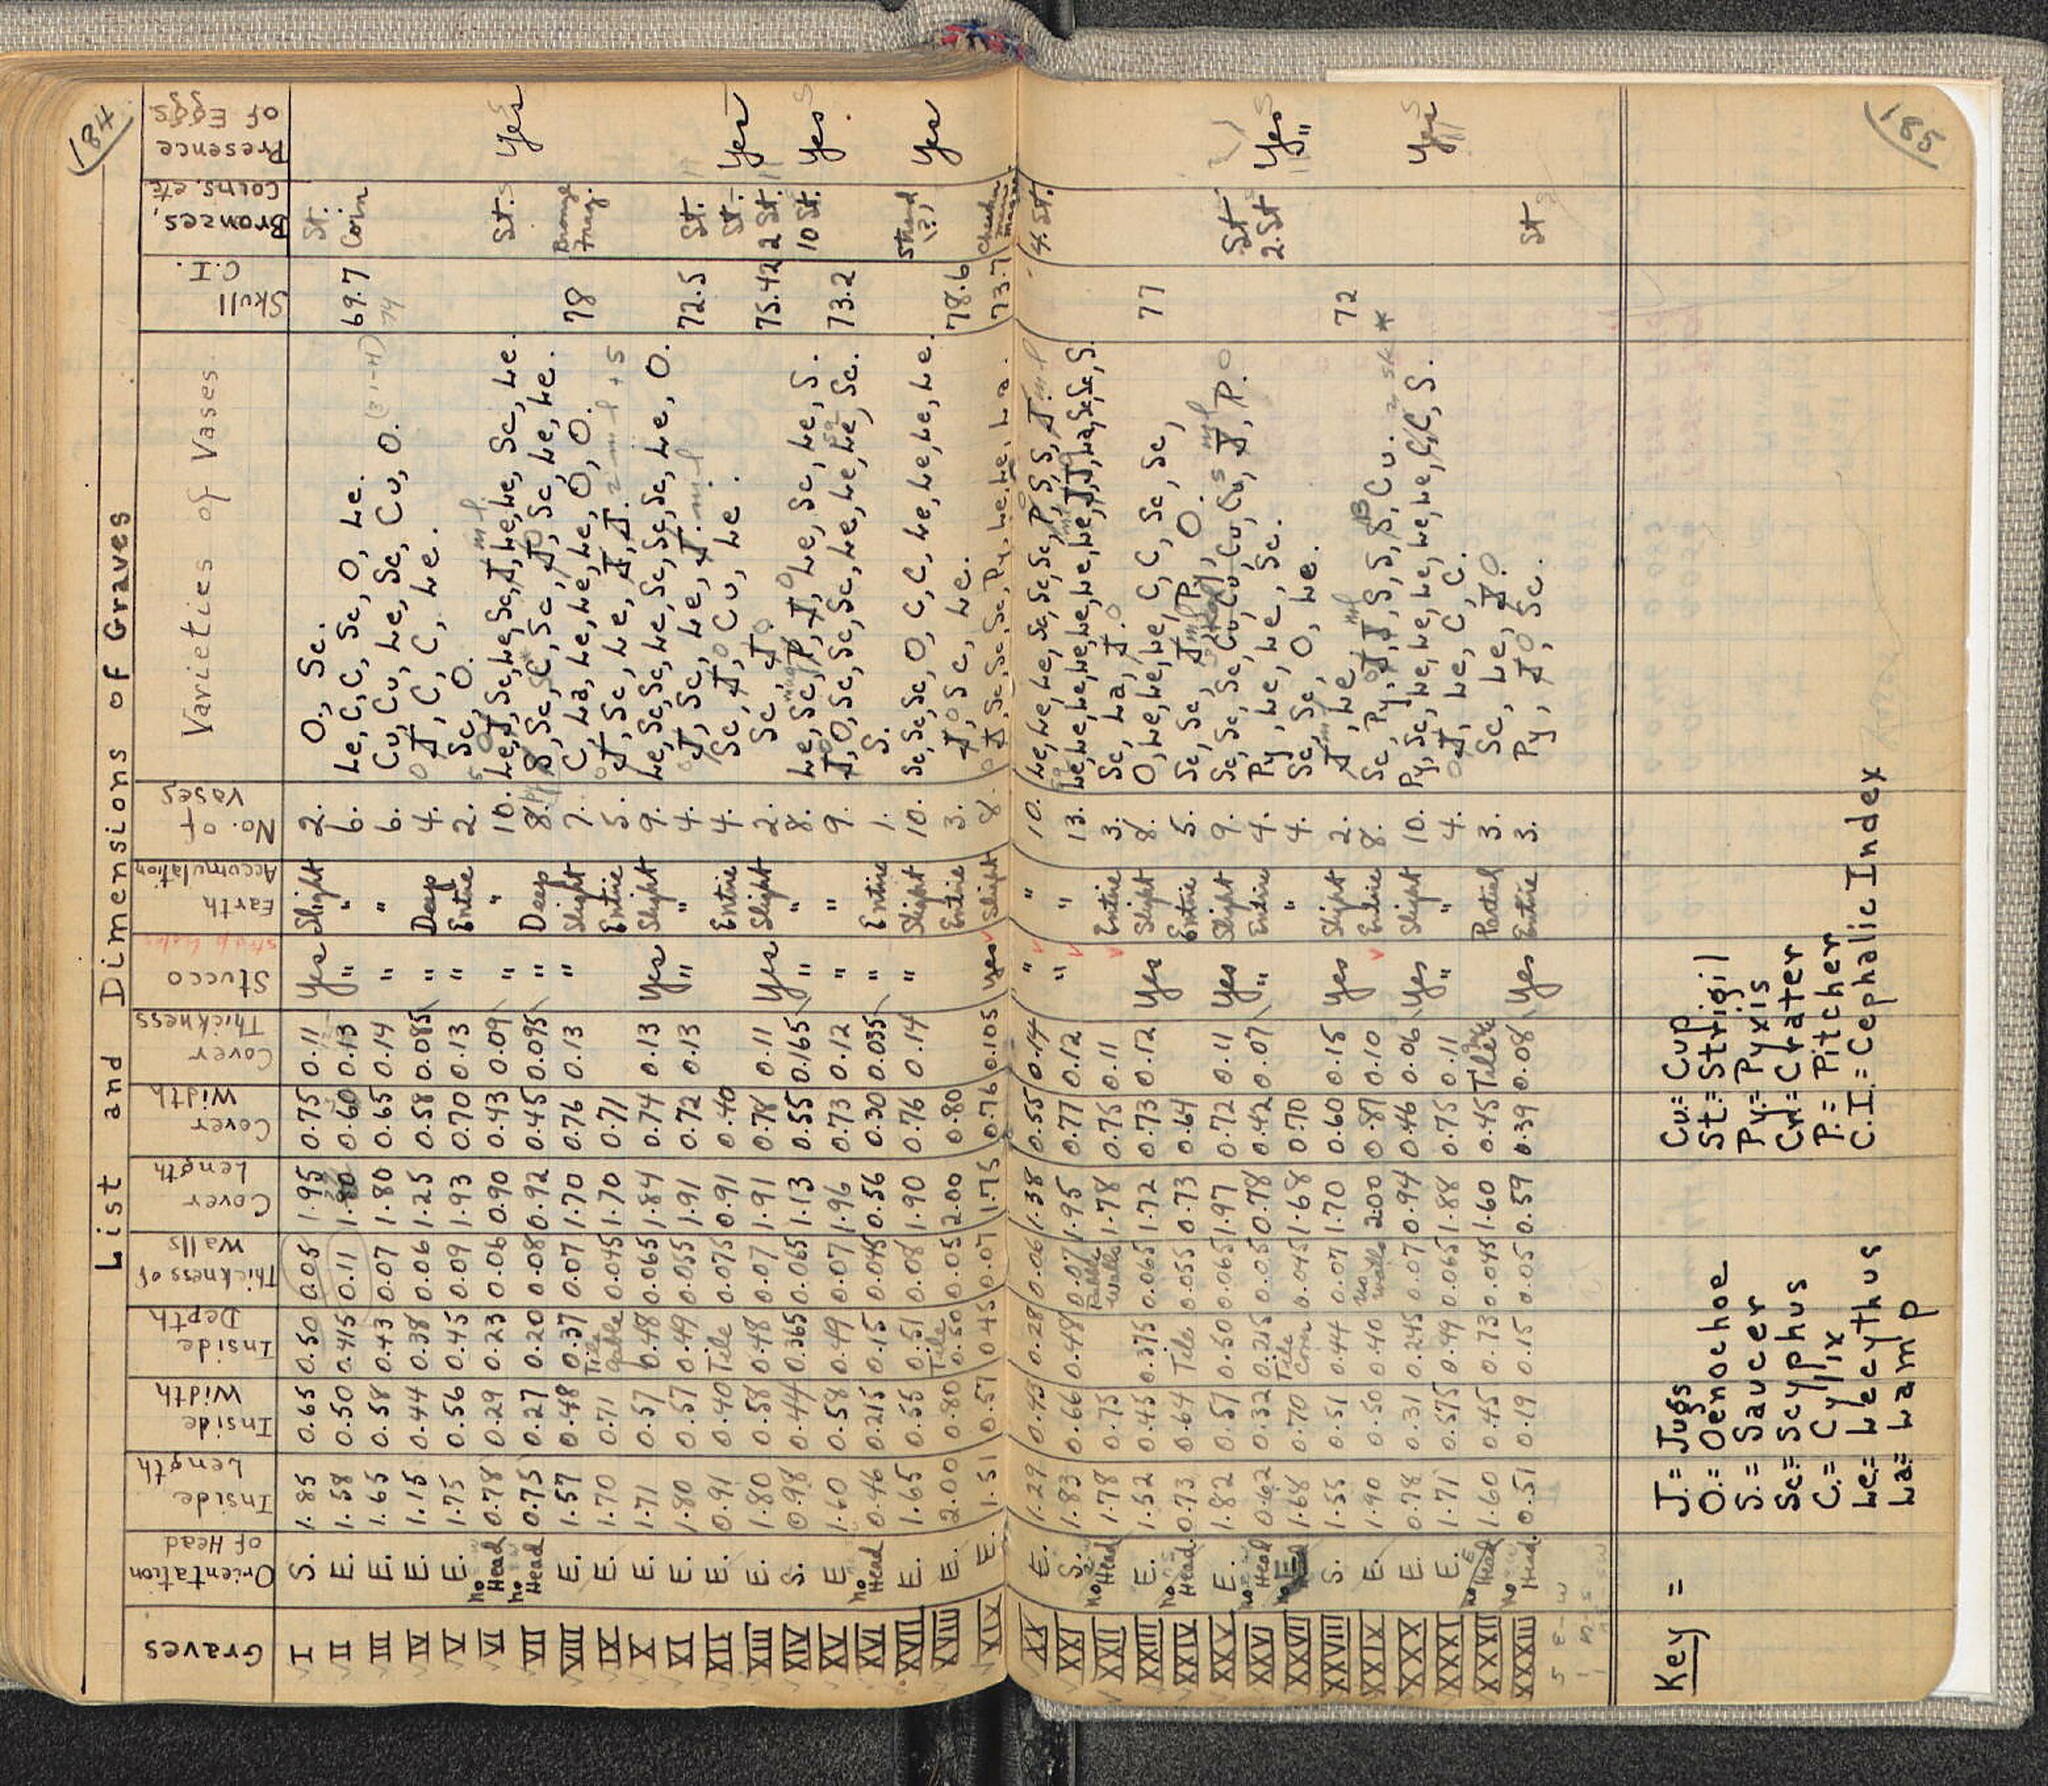 184
List and Dimensions of Graves
Graves | Orientation of Head | Inside Length | Inside Width | Inside Depth | Thickness of Walls | Cover Length | Cover Width | Cover Thickness | Stucco | Earth Accumulation | No. of Vases | Varieties of Vases | Skull C.I. | Bronzes, Coins, etc. | Presence of Eggs
I | S. | 1.85 | 0.65 | 0.50 | 0.05 | 1.95 | 0.75 | 0.11 | Yes | Slight | 2. | O., Sc. | | St. |
II | E. | 1.58 | 0.50 | 0.415 | 0.11 | 1.80 | 0.60 | 0.13 | " | " | 6. | Le, C, C, Sc, O, Le. | 69.7 | Coin |
III | E. | 1.65 | 0.58 | 0.43 | 0.07 | 1.80 | 0.65 | 0.14 | " | " | 6. | Cu, Cu, Le, Sc, Cu, O. | 74 | |
IV | E. | 1.15 | 0.44 | 0.38 | 0.06 | 1.25 | 0.58 | 0.085 | " | Deep | 4. | J, C, C, Le. | | |
V | E. | 1.75 | 0.56 | 0.45 | 0.09 | 1.93 | 0.70 | 0.13 | " | Entire | 2. | Sc, O. | | |
VI | No Head | 0.78 | 0.29 | 0.23 | 0.06 | 0.90 | 0.43 | 0.09 | " | " | 10. | Le, J, Sc, Le, Sc, J, Le, Le, Sc, Le. | | St. | Yes
VII | No Head | 0.75 | 0.27 | 0.20 | 0.08 | 0.92 | 0.45 | 0.095 | " | Deep | 8. | S, Sc, C, Sc, J, Sc, Le, Le. | | |
VIII | E. | 1.57 | 0.48 | 0.37 | 0.07 | 1.70 | 0.76 | 0.13 | " | Slight | 7. | C, La, Le, Le, Le, O, O. | 78 | Bronze Frag. |
IX | E. | 1.70 | 0.71 | Tile Gable | 0.045 | 1.70 | 0.71 | | | Entire | 5. | J, Sc, Le, J, J. | | |
X | E. | 1.71 | 0.57 | 0.48 | 0.065 | 1.84 | 0.74 | 0.13 | Yes | Slight | 9. | Le, Sc, Sc, Le, Sc, Sc, Sc, Le, O. | | |
XI | E. | 1.80 | 0.57 | 0.49 | 0.055 | 1.91 | 0.72 | 0.13 | " | " | 4. | J, Sc, Le, J. | 72.5 | St. |
XII | E. | 0.91 | 0.40 | Tile | 0.075 | 0.91 | 0.40 | | | Entire | 4. | Sc, J, Cu, Le. | | St. | Yes
XIII | E. | 1.80 | 0.58 | 0.48 | 0.07 | 1.91 | 0.78 | 0.11 | Yes | Slight | 2. | Sc, J. | 75.42 | 2 St. |
XIV | S. | 0.98 | 0.44 | 0.365 | 0.065 | 1.13 | 0.55 | 0.165 | " | " | 8. | Le, Sc, P, J, Le, Sc, Le, S. | | 10 St. | Yes
XV | E. | 1.60 | 0.58 | 0.49 | 0.07 | 1.96 | 0.73 | 0.12 | " | " | 9. | J, O, Sc, Sc, Sc, Le, Le, Le, Sc. | 73.2 | |
XVI | No Head | 0.46 | 0.215 | 0.15 | 0.045 | 0.56 | 0.30 | 0.035 | " | Entire | 1. | S. | | |
XVII | E. | 1.65 | 0.55 | 0.51 | 0.08 | 1.90 | 0.76 | 0.14 | " | Slight | 10. | Sc, Sc, Sc, O, C, C, Le, Le, Le, Le. | | St | Yes
XVIII | E. | 2.00 | 0.80 | Tile 0.50 | 0.05 | 2.00 | 0.80 | | | Entire | 3. | J, Sc, Le. | 78.6 | |
XIX | E. | 1.51 | 0.57 | 0.45 | 0.07 | 1.75 | 0.76 | 0.105 | Yes | Slight | 8. | J, Sc, Sc, Sc, Py, Le, Le, La. | 73.7 | |
185
XX | E. | 1.29 | 0.43 | 0.28 | 0.06 | 1.38 | 0.55 | 0.14 | " | " | 10. | Le, Le, Le, Sc, Sc, Sc, P, S, S, J. | | 4. St. |
XXI | S. | 1.83 | 0.66 | 0.48 | 0.07 | 1.95 | 0.77 | 0.12 | " | " | 13. | Le, Le, Le, Le, Le, Le, Le, J, J, La, Sc, Sc, S. | | |
XXII | No Head | 1.78 | 0.75 | | Walls | 1.78 | 0.75 | 0.11 | | Entire | 3. | Sc, La, J. | | |
XXIII | E. | 1.52 | 0.45 | 0.375 | 0.065 | 1.72 | 0.73 | 0.12 | Yes | Slight | 8. | O, Le, Le, Le, C, C, Sc, Sc, | 77 | |
XXIV | No Head | 0.73 | 0.64 | Tile | 0.055 | 0.73 | 0.64 | | | Entire | 5. | Sc, Sc, J, P, O. | | |
XXV | E. | 1.82 | 0.57 | 0.50 | 0.065 | 1.97 | 0.72 | 0.11 | Yes | Slight | 9. | Sc, Sc, Sc, Cu, Cu, Cu, Cu, J, P. | | St |
XXVI | No Head | 0.62 | 0.32 | 0.215 | 0.05 | 0.78 | 0.42 | 0.07 | " | Entire | 4. | Py, Le, Le, Sc. | | 2. St | Yes
XXVII | E | 1.68 | 0.70 | Tile Cover | 0.045 | 1.68 | 0.70 | | | " | 4. | Sc, Sc, O, Le. | | | "
XXVIII | S. | 1.55 | 0.51 | 0.44 | 0.07 | 1.70 | 0.60 | 0.15 | Yes | Slight | 2. | J, Le | 72 | |
XXIX | E. | 1.90 | 0.50 | 0.40 | No walls | 2.00 | 0.87 | 0.10 | | Entire | 8. | Sc, Py, J, J, S, S, S, Cu. | | |
XXX | E. | 0.78 | 0.31 | 0.245 | 0.07 | 0.94 | 0.46 | 0.06 | Yes | Slight | 10. | Py, Sc, Le, Le, Le, Le, Le, C, C, S. | | | Yes
XXXI | E. | 1.71 | 0.575 | 0.49 | 0.065 | 1.88 | 0.75 | 0.11 | " | " | 4. | J, Le, C, C. | | |
XXXII | No Head | 1.60 | 0.45 | 0.73 | 0.045 | 1.60 | 0.45 | Tile | | Partial | 3. | Sc, Le, J. | | |
XXXIII | No Head. | 0.51 | 0.19 | 0.15 | 0.05 | 0.59 | 0.39 | 0.08 | Yes | Entire | 3. | Py, J, Sc. | | St |
Key =
J. = Jugs
O. = Oenochoe
S. = Saucer
Sc = Scyphus
C. = Cylix
Le. = Lecythus
La = Lamp
Cu. = Cup
St = Strigil
Py = Pyxis
Cr = Crater
P. = Pitcher
C.I. = Cephalic Index